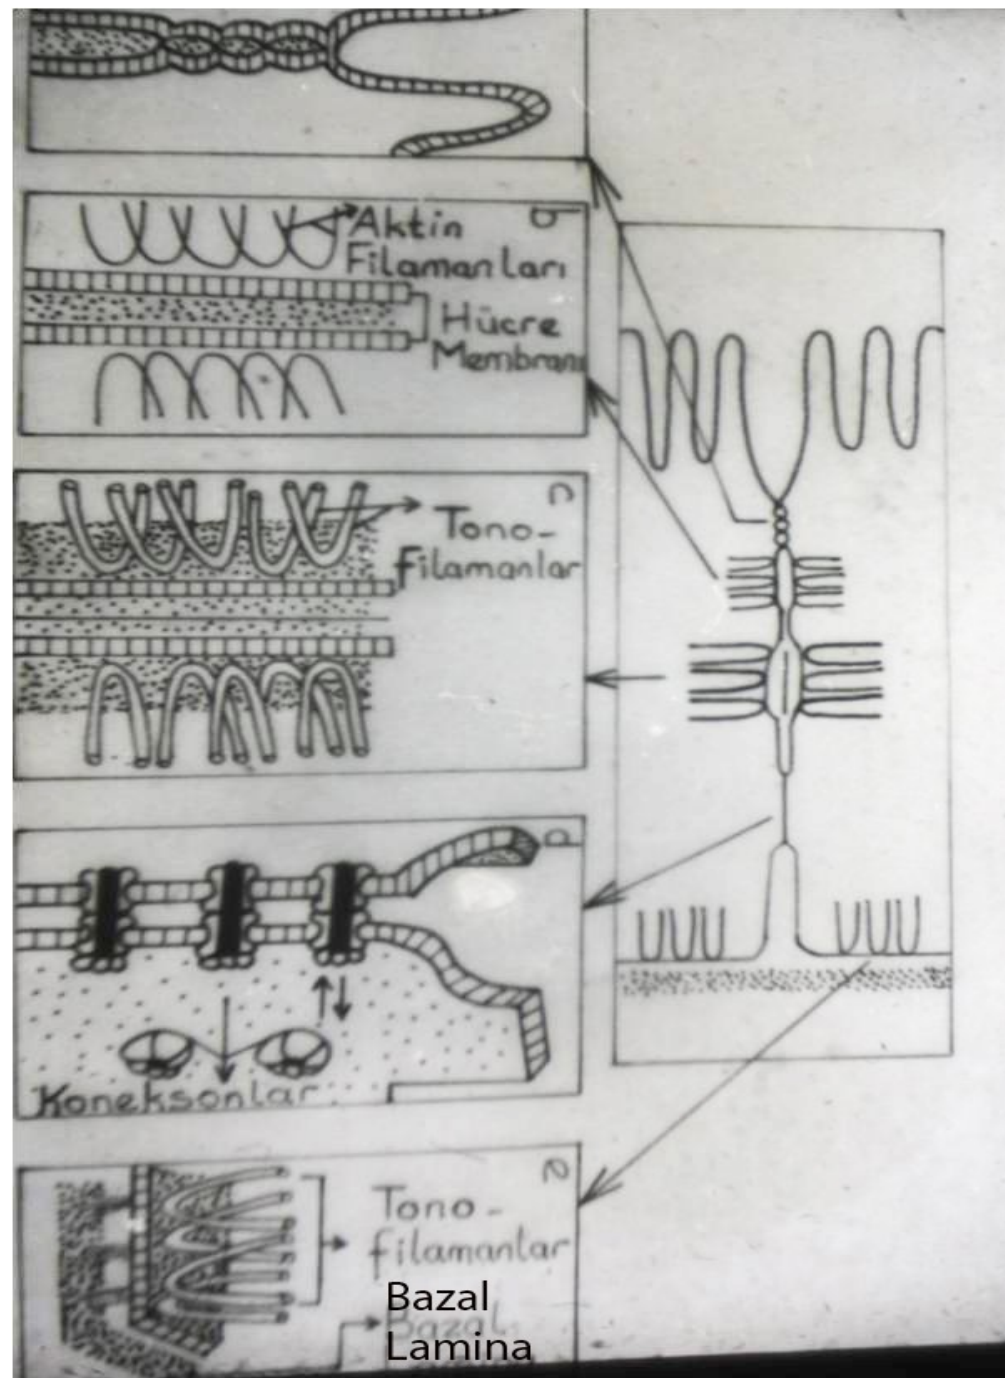 b
Aktin
Filamanları
Hücre
Membranı
c
Tono-
filamanlar
d
Koneksonlar
e
Tono-
filamanlar
Bazal
Bazal
Lamina